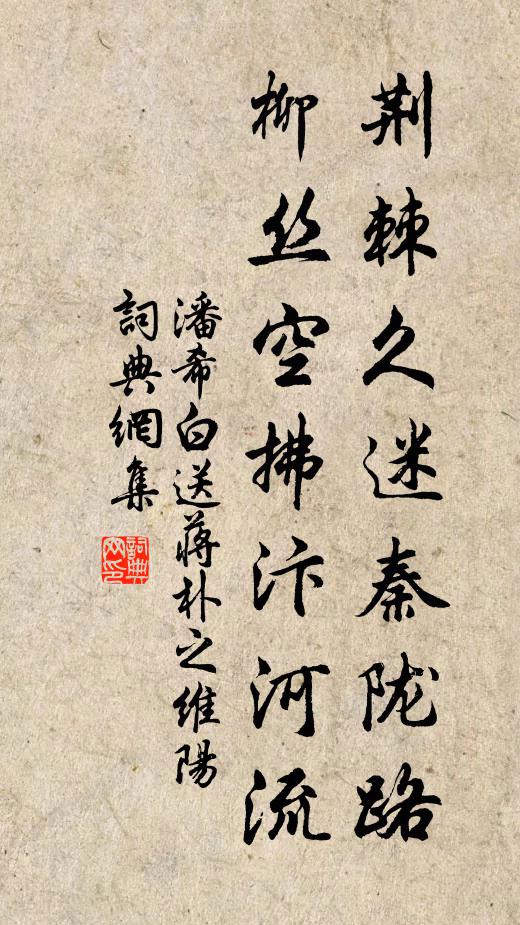 荆棘久迷秦陇路
柳丝空拂汴河流
潘希白送蔣朴之維陽
詞典網集
詞典网印